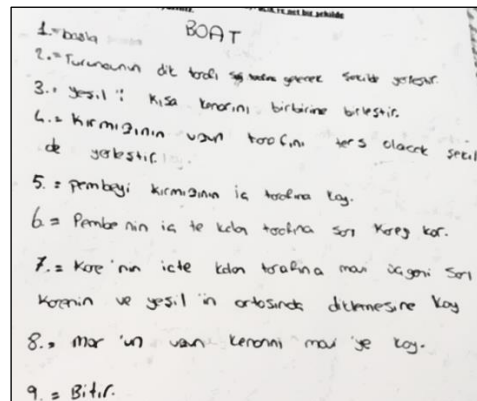 net bir şekilde
BOAT
1.= başla
2.= Turuncunun dik tarafı sağ tarafına gelecek şekilde yerleştir.
3.= yeşil'i kısa kenarını birbirine birleştir.
4.= Kırmızının uzun tarafını ters olacak şekil
de yerleştir.
5.= pembeyi kırmızının iç tarafına koy.
6.= Pembe'nin iç te kalan tarafına sarı Kareyi koy.
7.= Kare'nin içte kalan tarafına mavi üçgeni sarı
Karenin ve yeşil'in ortasında diklemesine koy
8.= Mor 'un uzun kenarını mavi 'ye koy.
9.= Bitir.